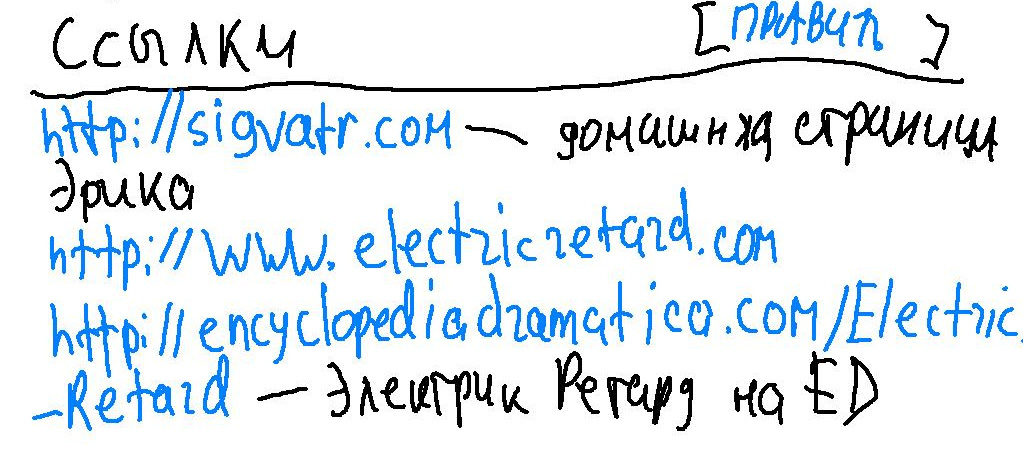 Ссылки [править]
http://sigvatr.com — домашняя страница
Эрика
http://www.electricretard.com
http://encyclopediadramatica.com/Electric
_Retard — Электрик Ретард на ED